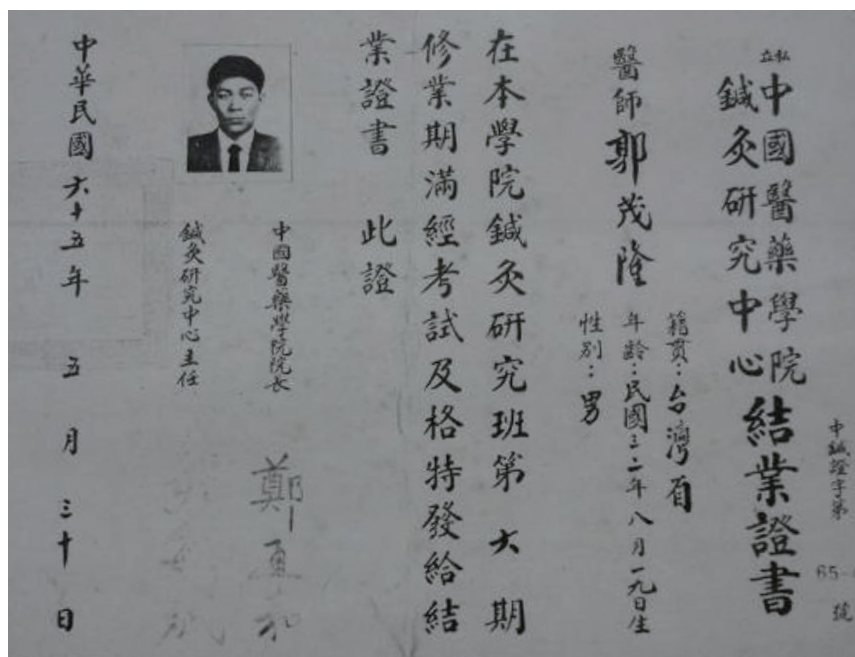 中鍼證字第 65- 號
私立中國醫藥學院
鍼灸研究中心結業證書
醫師郭茂隆
籍貫：台灣省
年齡：民國三二年八月一九日生
性別：男
在本學院鍼灸研究班第六期
修業期滿經考試及格特發給結
業證書 此證
中國醫藥學院院長
鍼灸研究中心主任
中華民國六十五年 五 月 三十 日